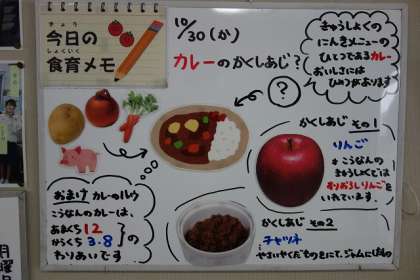 きょう
今日の
しょくいく
食育メモ
10/30(か)
カレーのかくしあじ?
きゅうしょくの
にんきメニューの
ひとつであるカレー
おいしさには
ひみつがあります
?
かくしあじ その1
りんご
★こうなんの
きゅうしょくでは
すりおろしりんごを
いれています。
おまけ カレーのルウ
こうなんのカレーは、
あまくち 12
からくち 3.8
の
わりあいです
かくしあじ その2
チャツネ
やさいやくだものをにて、ジャムにしたもの
月曜日